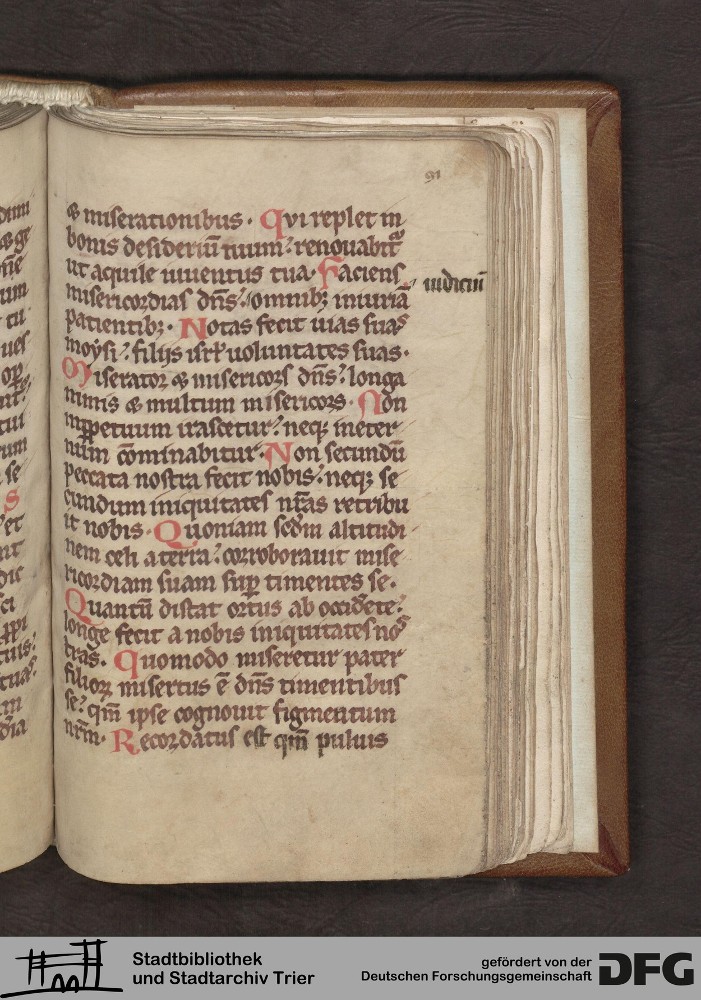 91
& miserationibus. Qui replet in
bonis desideriū tuum: renouabit᷑
ut aquile iuuentus tua. Faciens
iudiciū
misericordias dn̄s: omnibꝫ iniuriā
patientibꝫ. Notas fecit uias suas
moysi: filijs isrł uoluntates suas.
Miserator & misericors dn̄s: longa
nimis & multum misericors. Non
inꝑpetuum irascetur: neqꝫ ineter
num cōminabitur. Non secundū
peccata nostra fecit nobis: neqꝫ se
cundum iniquitates nr̄as retribu
it nobis. Quoniam scd̄m altitudi
nem celi a terra: corroborauit mise
ricordiam suam suꝑ timentes se.
Quantū distat ortus ab occidēte:
longe fecit a nobis iniquitates nos
tras. Quomodo miseretur pater
filioꝝ misertus ē dn̄s timentibus
se: qm̄ ipse cognouit figmentum
nr̄m. Recordatus est qm̄ puluis
dum
& ge
um
tu
ues
tui
rum
se
S
et
nt
die
sci
tuis:
tuas:
m
dia
Stadtbibliothek
und Stadtarchiv Trier
gefördert von der
Deutschen Forschungsgemeinschaft
DFG